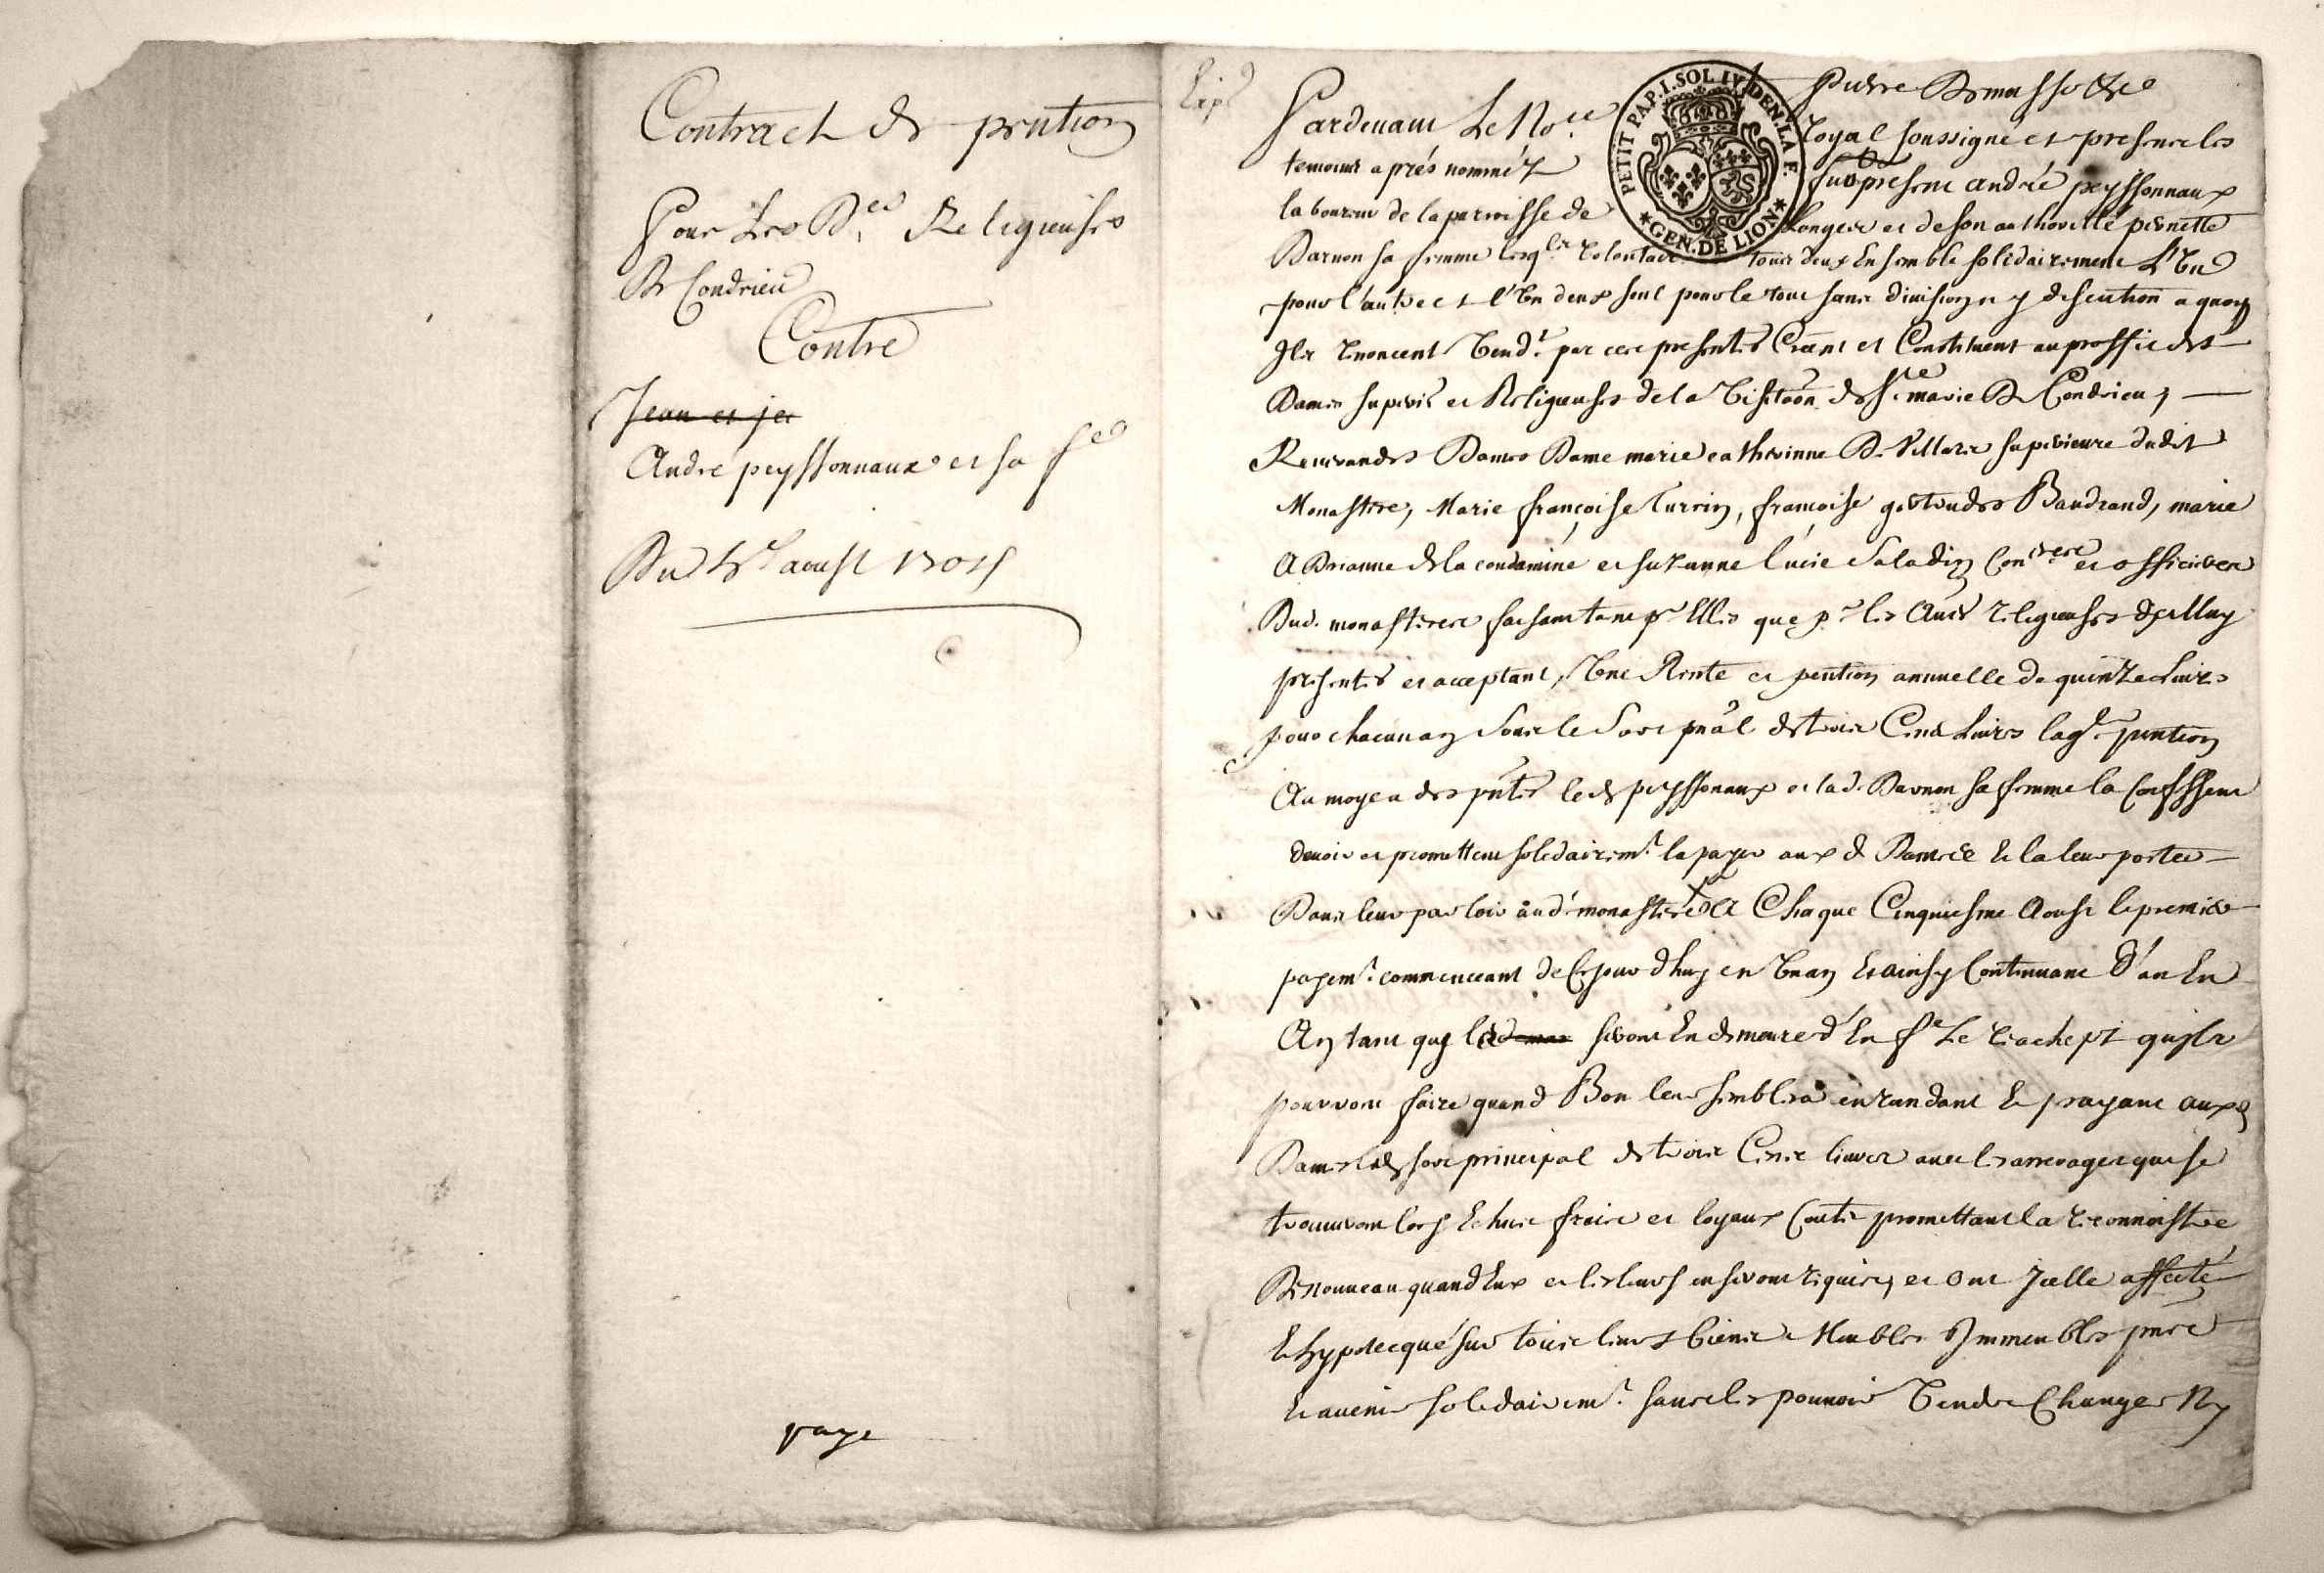 Contract de pention
Pour Les D.es Religieuses
De Condrieu
Contre
Jean et je
André peyssonnaux et sa fe
Du 5e aoust
paye
Exp
Pardevant Le No.re
Royal soussigné et presence les
temoins aprés nomméz
fut present andré peyssonnaux
laboureur de la parroisse de
Longes et de son authorité pernette
Darnon sa femme lesq.ls tous deux Ensemble solidairement L'Un
pour l'autre et l'Un deux seul pour le tout sans division ny discution a quoy
Ils renoncent Vend.t par ces presentes Creent et Constituent au proffit des
Dames superie et Religieuses de la Visitaon de Ste marie De Condrieu,
Reverandes Dames Dame marie catherinne De Villars superieure dudit
Monastere, Marie françoise Turrin, francoise gertrudes Baudrand, marie
Adrianne de la condamine et suzanne lucie Saladin et officieres
Dud. monastere faisant tant pr Elles que pr les Autres religieuses d'icelluy
presentes et acceptant, Une Rente et pention annuelle de quinze Livres
pour chacun an Sous le Sort pnal de trois Cens Livres laq. pention
Au moyen des pntes led peyssonaux et lad. Darnon sa femme la Confessent
devoir et promettent solidairemt. la payer aux d Dames & la leur porter
Dans leur parloir aud. monastere A Chaque Cinquiesme Aoust le premier
payemt. commenceant de Ce jour d'huy en Un an Et ainsy Continuant D'an En
An tant quy seront En demeure d'En fe Le rachept quils
pourront faire quand Bon leur semblera en randant & payant auxd
Dames led sort principal de trois Cens livres avec les arrerages qui se
trouveront lors Echus frais et loyaux Couts promettant la reconnoistre
De nouveau quand Eux et les leurs en seront requis, et ont Icelle affecté
& hypotecqué sur tous leurs biens Meubles Immeubles pnts
& avenir solidairemt. sans les pouvoir Vendre Changer Ny
PETIT PAP. I. SOL IV. DEN. LA F.
GEN. DE LION